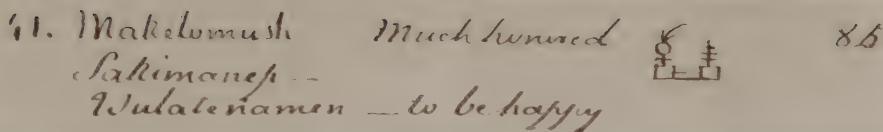 41. Makelomush Much honored 85
Sakimanep --
Wulatenamen -- to be happy